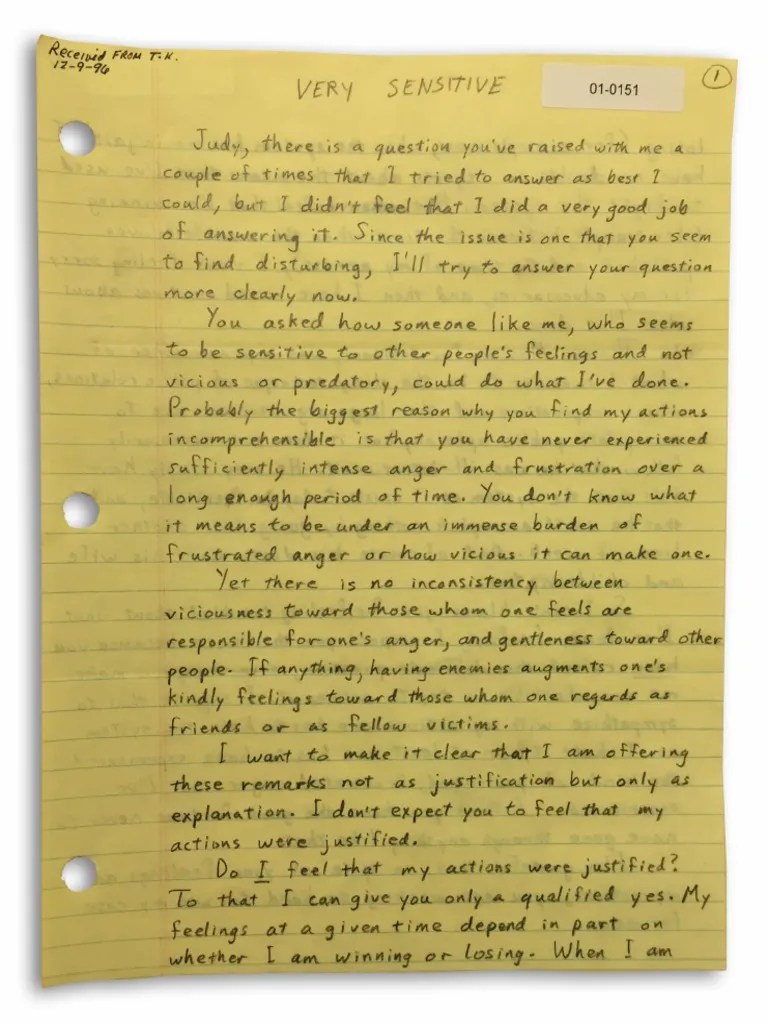 Received FROM T.K.
12-9-96
VERY SENSITIVE
01-0151
1
Judy, there is a question you've raised with me a
couple of times that I tried to answer as best I
could, but I didn't feel that I did a very good job
of answering it. Since the issue is one that you seem
to find disturbing, I'll try to answer your question
more clearly now.
You asked how someone like me, who seems
to be sensitive to other people's feelings and not
vicious or predatory, could do what I've done.
Probably the biggest reason why you find my actions
incomprehensible is that you have never experienced
sufficiently intense anger and frustration over a
long enough period of time. You don't know what
it means to be under an immense burden of
frustrated anger or how vicious it can make one.
Yet there is no inconsistency between
viciousness toward those whom one feels are
responsible for one's anger, and gentleness toward other
people. If anything, having enemies augments one's
kindly feelings toward those whom one regards as
friends or as fellow victims.
I want to make it clear that I am offering
these remarks not as justification but only as
explanation. I don't expect you to feel that my
actions were justified.
Do I feel that my actions were justified?
To that I can give you only a qualified yes. My
feelings at a given time depend in part on
whether I am winning or losing. When I am